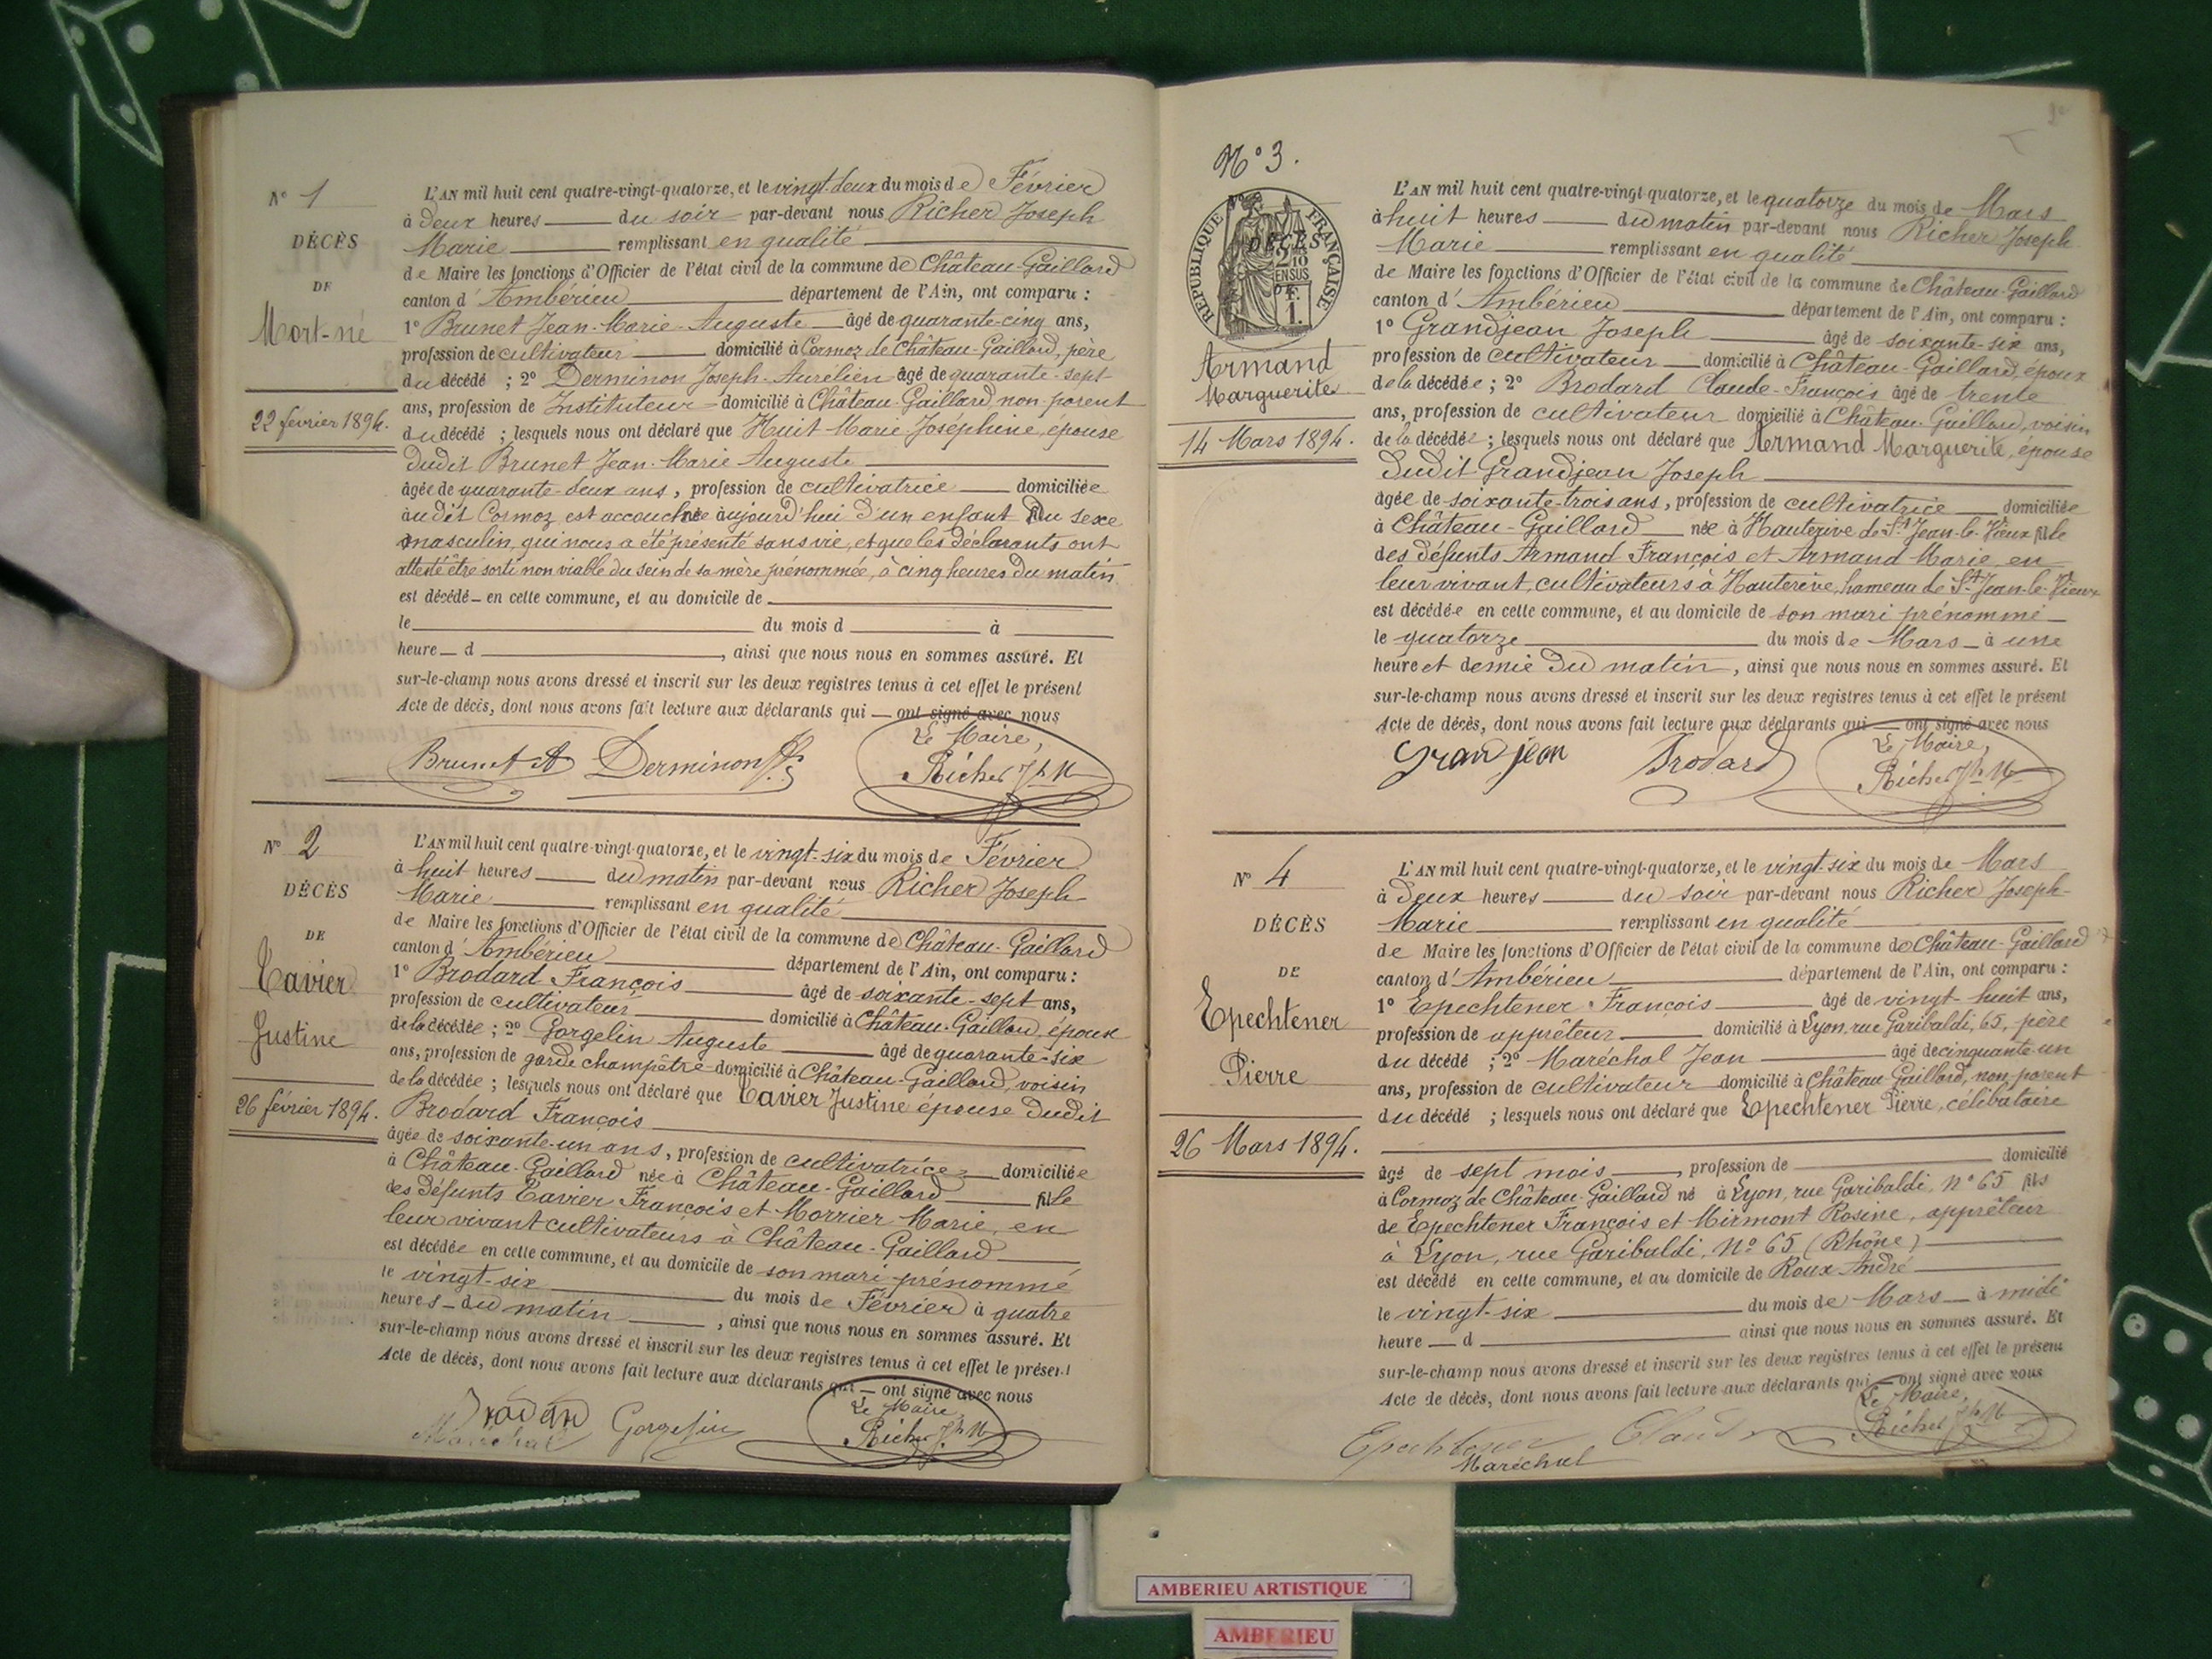 N° 1
DÉCÈS
DE
Mort-né
22 février 1894.
L'AN mil huit cent quatre-vingt-quatorze, et le vingt-deux du mois de Février
à deux heures du soir par-devant nous Richer Joseph
Marie remplissant en qualité
de Maire les fonctions d'Officier de l'état civil de la commune de Château-Gaillard
canton d'Ambérieu département de l'Ain, ont comparu :
1° Brunet Jean-Marie-Auguste âgé de quarante-cinq ans,
profession de cultivateur domicilié à Cormoz de Château-Gaillard, père
du décédé ; 2° Derminon Joseph-Aurélien âgé de quarante-sept
ans, profession de Instituteur domicilié à Château-Gaillard, non parent
du décédé ; lesquels nous ont déclaré que Huit Marie Joséphine, épouse
dudit Brunet Jean-Marie Auguste
âgée de quarante-deux ans, profession de cultivatrice domiciliée
audit Cormoz est accouchée aujourd'hui d'un enfant du sexe
masculin, qui nous a été présenté sans vie, et que les déclarants ont
attesté être sorti non viable du sein de sa mère prénommée, à cinq heures du matin
est décédé en cette commune, et au domicile de
le du mois d à
heure d , ainsi que nous nous en sommes assuré. Et
sur-le-champ nous avons dressé et inscrit sur les deux registres tenus à cet effet le présent
Acte de décès, dont nous avons fait lecture aux déclarants qui ont signé avec nous
Brunet A Derminon Le Maire,
Richer Jh M
N° 2
DÉCÈS
DE
Tavier
Justine
26 février 1894.
L'AN mil huit cent quatre-vingt-quatorze, et le vingt-six du mois de Février
à huit heures du matin par-devant nous Richer Joseph
Marie remplissant en qualité
de Maire les fonctions d'Officier de l'état civil de la commune de Château-Gaillard
canton d'Ambérieu département de l'Ain, ont comparu :
1° Brodard François âgé de soixante-sept ans,
profession de cultivateur domicilié à Château-Gaillard, époux
de la décédée ; 2° Gorgelin Auguste âgé de quarante-six
ans, profession de garde champêtre domicilié à Château-Gaillard, voisin
de la décédée ; lesquels nous ont déclaré que Tavier Justine épouse dudit
Brodard François
âgée de soixante-un ans, profession de cultivatrice domiciliée
à Château-Gaillard née à Château-Gaillard fille
des défunts Tavier François et Morrier Marie, en
leur vivant cultivateurs à Château-Gaillard
est décédée en cette commune, et au domicile de son mari prénommé
le vingt-six du mois de Février à quatre
heures du matin , ainsi que nous nous en sommes assuré. Et
sur-le-champ nous avons dressé et inscrit sur les deux registres tenus à cet effet le présent
Acte de décès, dont nous avons fait lecture aux déclarants qui ont signé avec nous
Gorgelin Le Maire,
Maréchal Richer Jh M
N° 3.
RÉPUBLIQUE FRANÇAISE
DÉCÈS
2/10
EN SUS
1F.
Armand
Marguerite
14 Mars 1894.
L'AN mil huit cent quatre-vingt-quatorze, et le quatorze du mois de Mars
à huit heures du matin par-devant nous Richer Joseph
Marie remplissant en qualité
de Maire les fonctions d'Officier de l'état civil de la commune de Château-Gaillard
canton d'Ambérieu département de l'Ain, ont comparu :
1° Grandjean Joseph âgé de soixante-six ans,
profession de cultivateur domicilié à Château-Gaillard, époux
de la décédée ; 2° Brodard Claude-François âgé de trente
ans, profession de cultivateur domicilié à Château-Gaillard, voisin
de la décédée ; lesquels nous ont déclaré que Armand Marguerite, épouse
dudit Grandjean Joseph
âgée de soixante-trois ans, profession de cultivatrice domiciliée
à Château-Gaillard née à Hauterive de St Jean-le-Vieux fille
des défunts Armand François et Armand Marie, en
leur vivant, cultivateurs à Hauterive, hameau de St Jean-le-Vieux
est décédée en cette commune, et au domicile de son mari prénommé
le quatorze du mois de Mars à une
heure et demie du matin , ainsi que nous nous en sommes assuré. Et
sur-le-champ nous avons dressé et inscrit sur les deux registres tenus à cet effet le présent
Acte de décès, dont nous avons fait lecture aux déclarants qui ont signé avec nous
Grandjean Brodard Le Maire,
Richer Jh M
N° 4
DÉCÈS
DE
Epechtener
Pierre
26 Mars 1894.
L'AN mil huit cent quatre-vingt-quatorze, et le vingt-six du mois de Mars
à deux heures du soir par-devant nous Richer Joseph-
Marie remplissant en qualité
de Maire les fonctions d'Officier de l'état civil de la commune de Château-Gaillard
canton d'Ambérieu département de l'Ain, ont comparu :
1° Epechtener François âgé de vingt-huit ans,
profession de apprêteur domicilié à Lyon, rue Garibaldi, 65, père
du décédé ; 2° Maréchal Jean âgé de cinquante-un
ans, profession de cultivateur domicilié à Château-Gaillard, non parent
du décédé ; lesquels nous ont déclaré que Epechtener Pierre, célibataire
âgé de sept mois , profession de domicilié
à Cormoz de Château-Gaillard né à Lyon, rue Garibaldi, N° 65 fils
de Epechtener François et Mirmont Rosine, apprêteur
à Lyon, rue Garibaldi, N° 65 (Rhône)
est décédé en cette commune, et au domicile de Roux André
le vingt-six du mois de Mars à midi
heure d ainsi que nous nous en sommes assuré. Et
sur-le-champ nous avons dressé et inscrit sur les deux registres tenus à cet effet le présent
Acte de décès, dont nous avons fait lecture aux déclarants qui ont signé avec nous
Epechtener Le Maire,
Maréchal Richer Jh M
AMBERIEU ARTISTIQUE
AMBERIEU